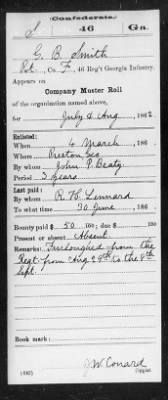 Confederate.
S 46 Ga.
G. B. Smith
Co. F, 46 Reg't Georgia Infantry.
Appears on
Company Muster Roll
of the organization named above,
for July & Aug, 1862
Enlisted:
When 4 March, 186
Where Preston, Geo
By whom John P. Beaty
Period 3 years
Last paid:
By whom R. H. Lennard
To what time 30 June, 186
Bounty paid $ 50 100; due $ 100
Present or absent Absent
Remarks: Furloughed from the
Regt from Aug 29th to the 8th
Sept.
Book mark:
J. W. Conard
Copyist.